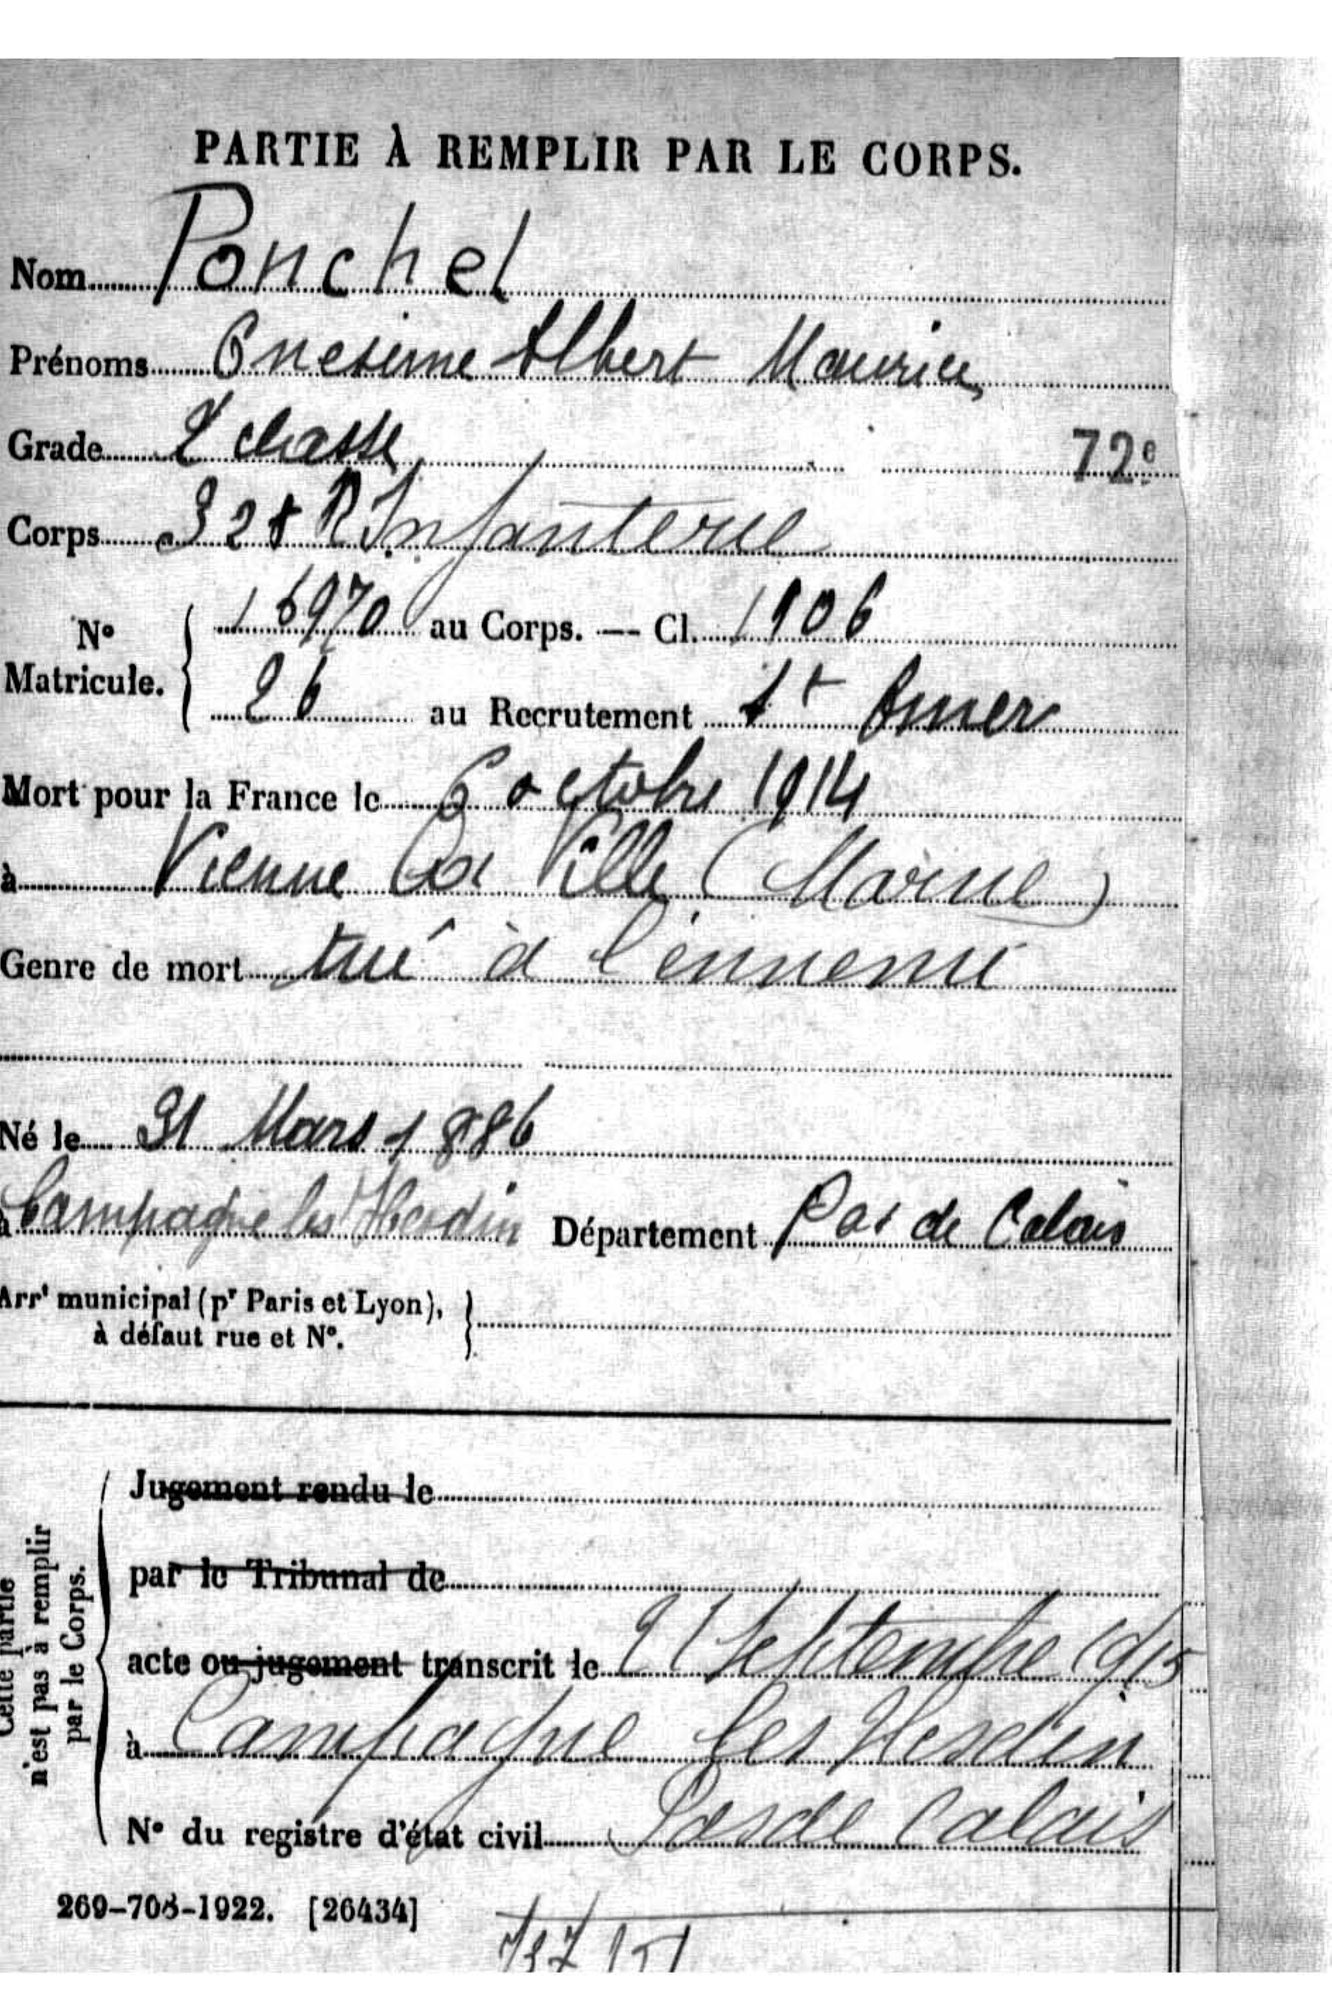 PARTIE À REMPLIR PAR LE CORPS.
Nom Ponchel
Prénoms Onesime Albert Maurice
Grade 2 classe 72e
Corps 328 R Infanterie
No Matricule. 16970 au Corps. — Cl. 1906
26 au Recrutement St Omer
Mort pour la France le 6 octobre 1914
à Vienne Ville (Marne)
Genre de mort tué à l'ennemi
Né le 31 Mars 1886
à Campagne les Hesdin Département Pas de Calais
Arrt municipal (pr Paris et Lyon),
à défaut rue et No.
Cette partie
n'est pas à remplir
par le Corps.
Jugement rendu le
par le Tribunal de
acte ou jugement transcrit le 21 Septembre 1915
à Campagne les Hesdin
No du registre d'état civil Pas de Calais
269-708-1922. [26434]